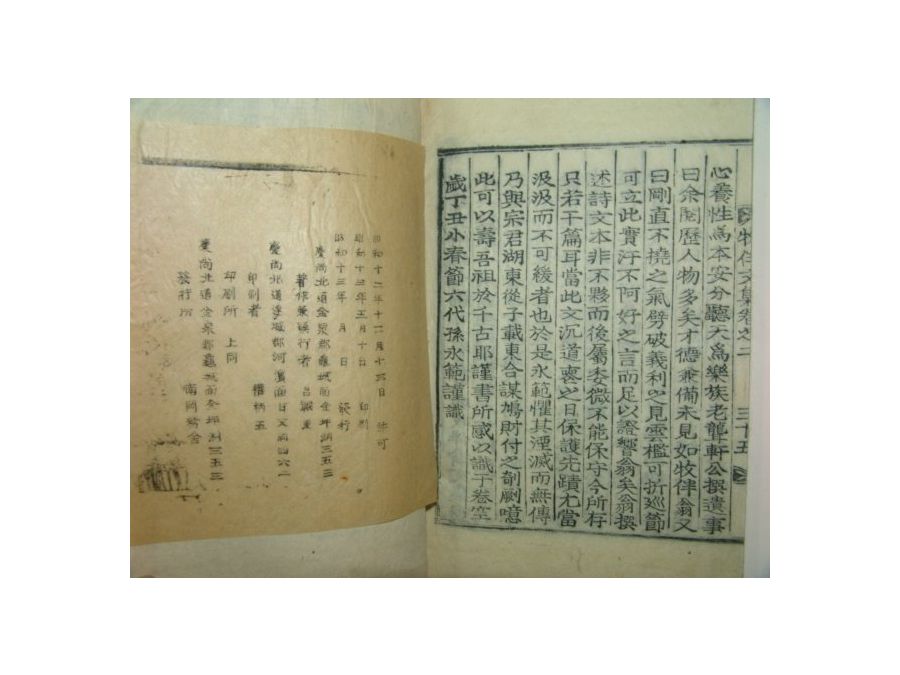 牧伴文集卷之二
三十五
心養性爲本安分聽天爲樂族老聾軒公撰遺事
曰余閱歷人物多矣才德兼備未見如牧伴翁又
曰剛直不撓之氣劈破義利之見雲檻可折巡節
可立此實汙不阿好之言而足以證響翁矣翁撰
述詩文本非不夥而後屬委微不能保守今所存
只若干篇耳當此文沉道喪之日保護先蹟尤當
汲汲而不可緩者也於是永範懼其湮滅而無傳
乃與宗君湖東從子載東合謀鳩財付之剞劂噫
此可以壽吾祖於千古耶謹書所感以識于卷空
歲丁丑小春節六代孫永範謹識
昭和十二年十一月十六日 許可
昭和十三年五月十日 印刷
昭和十三年 月 日 發行
慶尙北道金泉郡龜城面金坪洞三五三
著作兼發行者 呂
慶尙北道漆城郡河濱面
印刷者 柄五
印刷所 上同
慶尙北道金泉郡龜城面金坪洞三五三
發行所 南岡